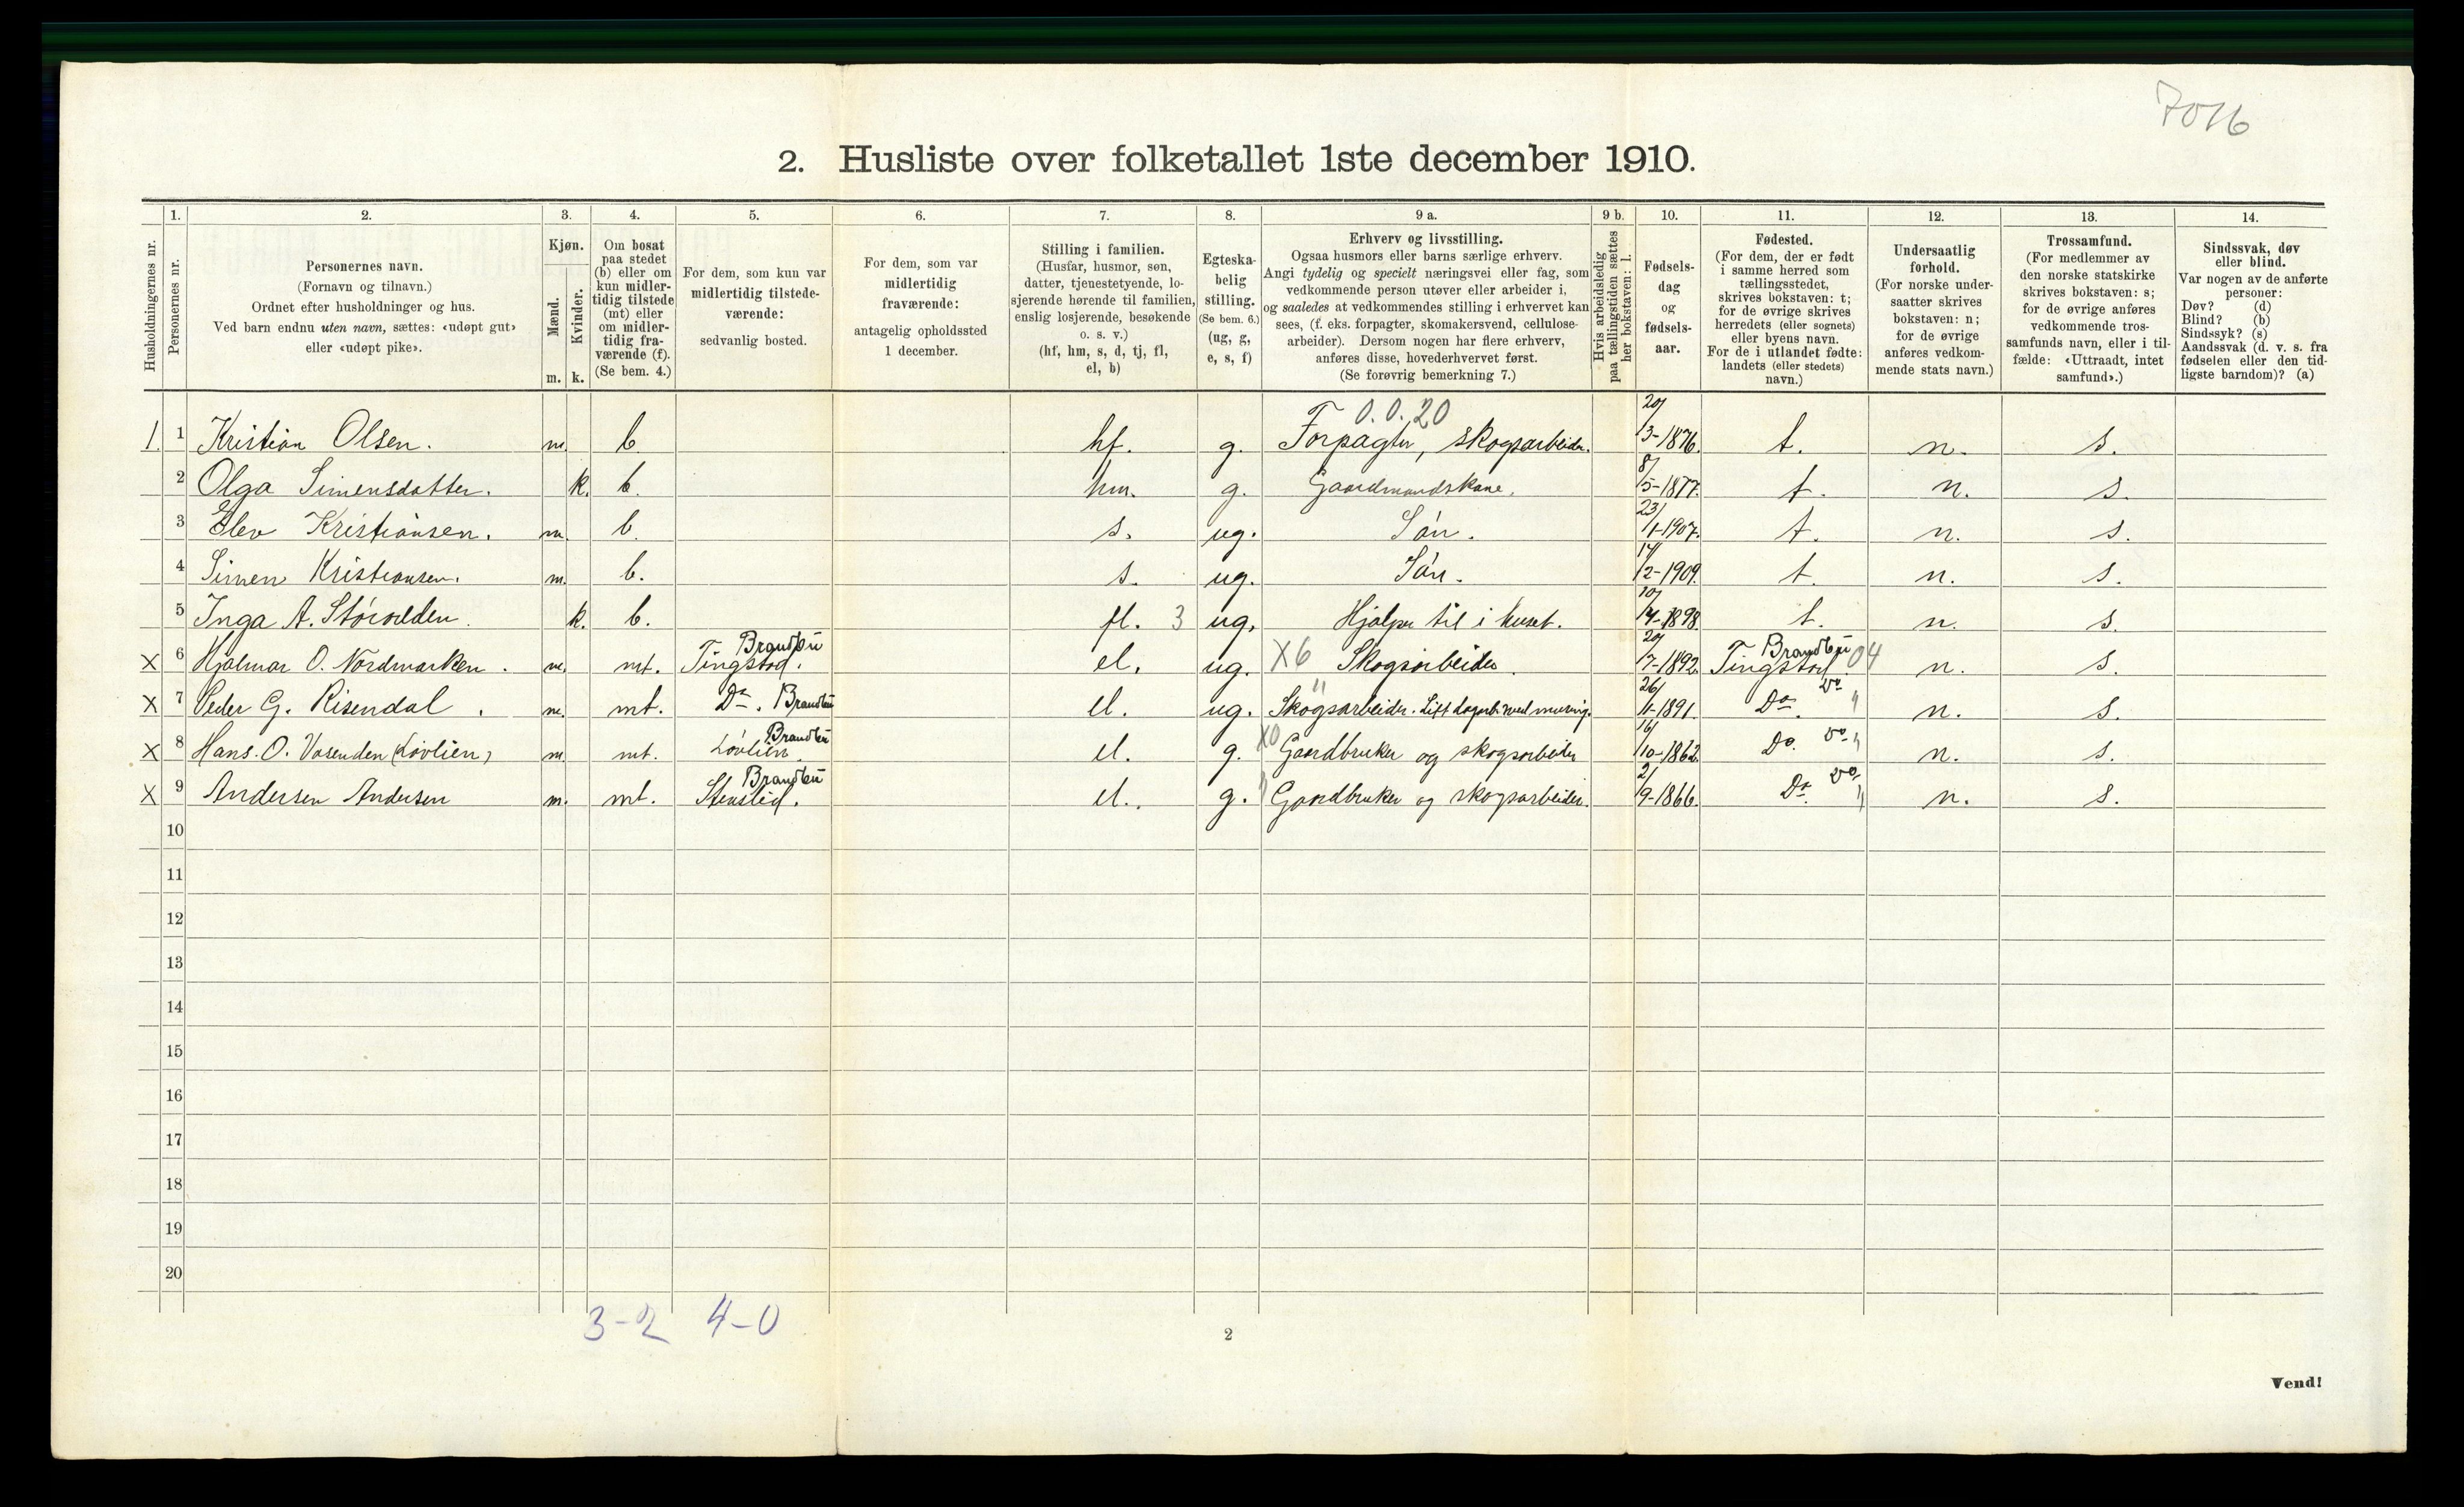 7016
2. Husliste over folketallet 1ste december 1910.
1. 2. 3. 4. 5. 6. 7. 8. 9 a. 9 b. 10. 11. 12. 13. 14.
Husholdningernes nr.
Personernes nr.
Personernes navn.
(Fornavn og tilnavn.)
Ordnet efter husholdninger og hus.
Ved barn endnu uten navn, sættes: «udøpt gut»
eller «udøpt pike».
Kjøn.
Mænd.
Kvinder.
m. k.
Om bosat
paa stedet
(b) eller om
kun midler-
tidig tilstede
(mt) eller
om midler-
tidig fra-
værende (f).
(Se bem. 4.)
For dem, som kun var
midlertidig tilstede-
værende:
sedvanlig bosted.
For dem, som var
midlertidig
fraværende:
antagelig opholdssted
1 december.
Stilling i familien.
(Husfar, husmor, søn,
datter, tjenestetyende, lo-
sjerende hørende til familien,
enslig losjerende, besøkende
o. s. v.)
(hf, hm, s, d, tj, fl,
el, b)
Egteska-
belig
stilling.
(Se bem. 6.)
(ug, g,
e, s, f)
Erhverv og livsstilling.
Ogsaa husmors eller barns særlige erhverv.
Angi tydelig og specielt næringsvei eller fag, som
vedkommende person utøver eller arbeider i,
og saaledes at vedkommendes stilling i erhvervet kan
sees, (f. eks. forpagter, skomakersvend, cellulose-
arbeider). Dersom nogen har flere erhverv,
anføres disse, hovederhvervet først.
(Se forøvrig bemerkning 7.)
Hvis arbeidsledig
paa tællingstiden sættes
her bokstaven: l.
Fødsels-
dag
og
fødsels-
aar.
Fødested.
(For dem, der er født
i samme herred som
tællingsstedet,
skrives bokstaven: t;
for de øvrige skrives
herredets (eller sognets)
eller byens navn.
For de i utlandet fødte:
landets (eller stedets)
navn.)
Undersaatlig
forhold.
(For norske under-
saatter skrives
bokstaven: n;
for de øvrige
anføres vedkom-
mende stats navn.)
Trossamfund.
(For medlemmer av
den norske statskirke
skrives bokstaven: s;
for de øvrige anføres
vedkommende tros-
samfunds navn, eller i til-
fælde: «Uttraadt, intet
samfund».)
Sindssvak, døv
eller blind.
Var nogen av de anførte
personer:
Døv? (d)
Blind? (b)
Sindssyk? (s)
Aandssvak (d. v. s. fra
fødselen eller den tid-
ligste barndom)? (a)
0.0.20
1. 1 Kristian Olsen. m. b. hf. g. Forpagter, skogsarbeider. 20/3-1876. t. n. s.
2 Olga Simensdatter. k. b. hm. g. Gaardmandskone. 8/5-1877. t. n. s.
3 Elev Kristiansen. m. b. s. ug. Sön. 23/1-1907. t. n. s.
4 Simen Kristiansen. m. b. s. ug. Sön. 17/2-1909. t. n. s.
5 Inga A. k. b. fl. 3 ug. Hjælper til i huset. 10/4-1898. t. n. s.
Brandbu Brandbu
X 6 Hjalmar O. Nordmarken. m. mt. Tingstad. el. ug. X6 Skogsarbeider. 20/7-1892. Tingstad 04 n. s.
X 7 Peder G. Risendal. m. mt. Do. Brandbu el. ug. " Skogsarbeider. 26/11-1891. Do. Do " n. s.
Brandbu
X 8 Hans. O. Vasenden (Lövlien) m. mt. Lövlien. el. g. X0 Gaardbruker og skogsarbeider 16/10-1862. Do. Do " n. s.
Brandbu
X 9 Andersen Andersen m. mt. el. g. " Gaardbruker og skogsarbeider. 2/9-1866. Do. Do " n. s.
10
11
12
13
14
15
16
17
18
19
20
3-2 4-0
2
Vend!